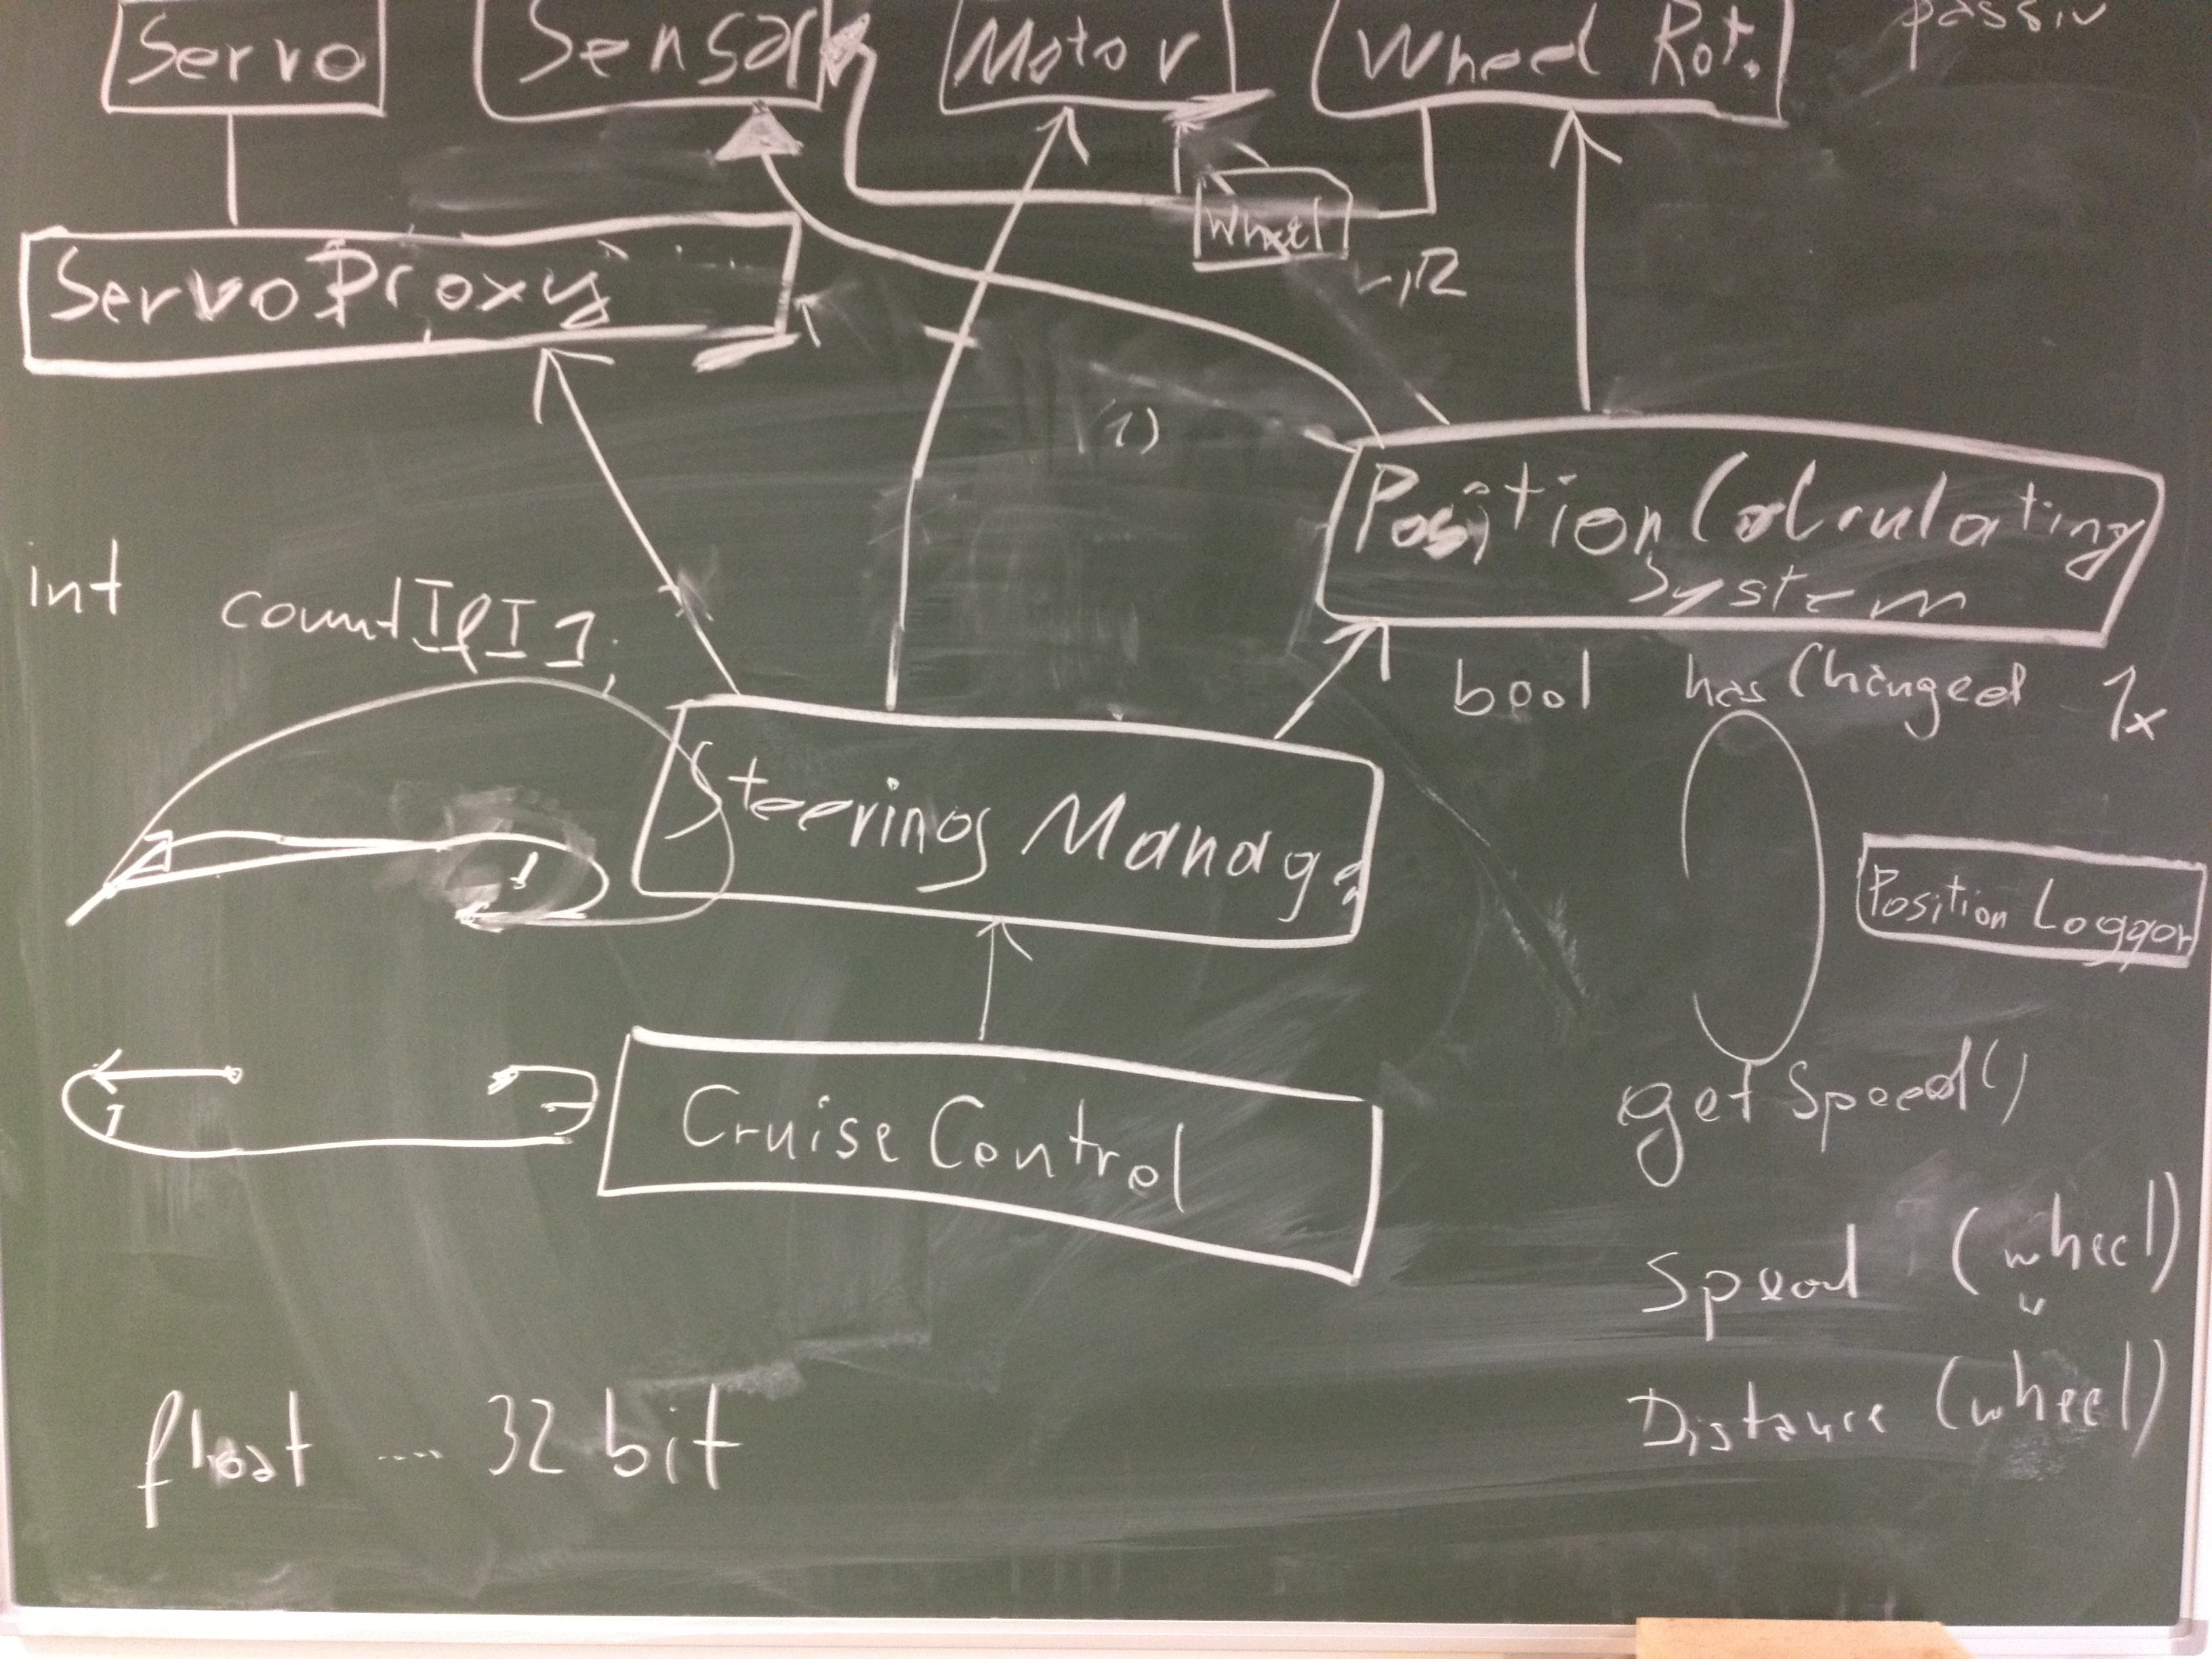 Servo
Sensor
Motor
Wheel Rot.
passiv
Wheel
L,R
ServoProxy
(1)
Position Calculating
System
int countIfI1;
bool hasChanged 1x
Steerings Manage
Position Loggor
Cruise Control
getSpeed()
Speed (wheel)
Distance (wheel)
float .... 32 bit